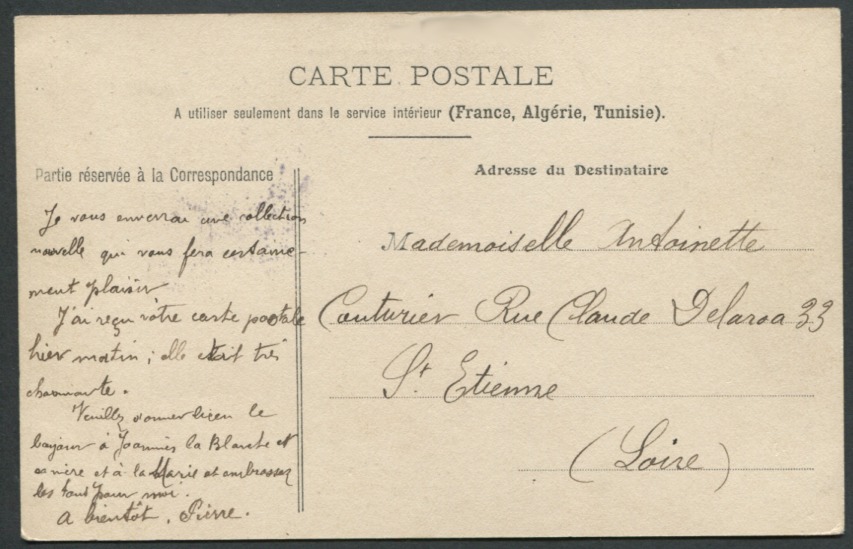 CARTE POSTALE
A utiliser seulement dans le service intérieur (France, Algérie, Tunisie).
Partie réservée à la Correspondance
Je vous enverrai une collection
nouvelle qui vous fera certaine-
ment plaisir
J'ai reçu votre carte postale
hier matin ; elle était très
charmante.
Veuillez donner bien le
bonjour à Joannès la Blanche et
sa mère et à la Marie et embrassez
les tous pour moi.
A bientôt, Pierre.
Adresse du Destinataire
Mademoiselle Antoinette
Couturier Rue Claude Delaroa 33
St Etienne
(Loire)